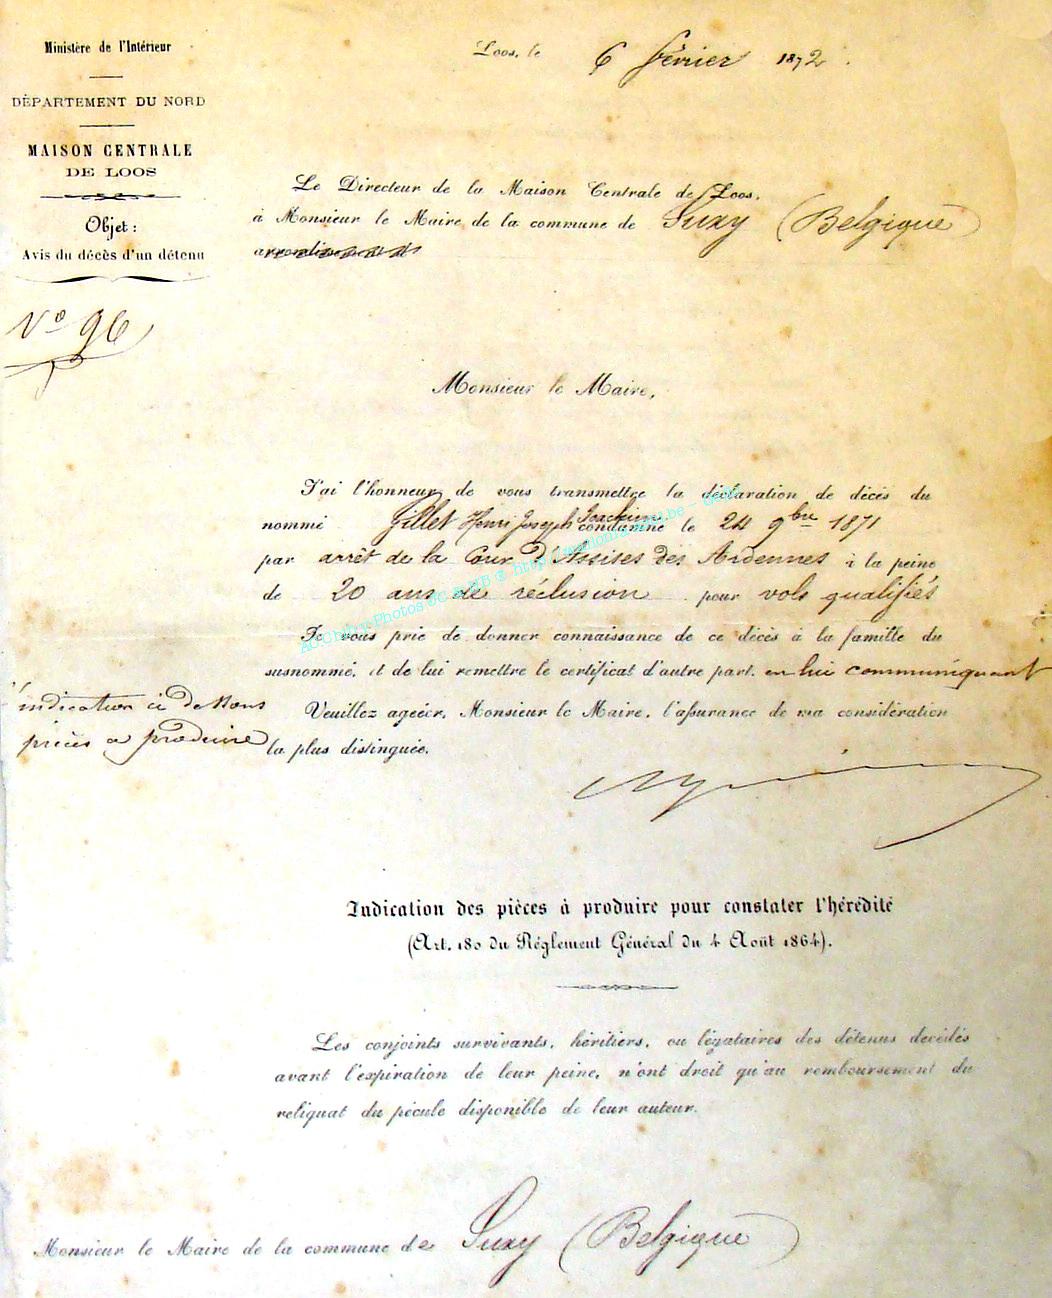 Ministère de l'Intérieur
DÉPARTEMENT DU NORD
MAISON CENTRALE
DE LOOS
Objet :
Avis du décès d'un détenu
N° 96
Loos, le 6 février 1872.
Le Directeur de la Maison Centrale de Loos,
à Monsieur le Maire de la commune de Suxy (Belgique)
arrondissement de
Monsieur le Maire,
J'ai l'honneur de vous transmettre la déclaration de décès du
nommé Gillet Henri Joseph Joachim condamné le 24 9bre 1871
par arrêt de la Cour d'Assises des Ardennes à la peine
de 20 ans de réclusion pour vols qualifiés
Je vous prie de donner connaissance de ce décès à la famille du
susnommé, et de lui remettre le certificat d'autre part, en lui communiquant
l'indication ci dessous
pièces à produire
Veuillez agréer, Monsieur le Maire, l'assurance de ma considération
la plus distinguée.
Indication des pièces à produire pour constater l'hérédité
(Art. 180 du Réglement Général du 4 Août 1864).
Les conjoints survivants, héritiers, ou légataires des détenus décédés
avant l'expiration de leur peine, n'ont droit qu'au remboursement du
reliquat du pécule disponible de leur auteur.
Monsieur le Maire de la commune de Suxy (Belgique)